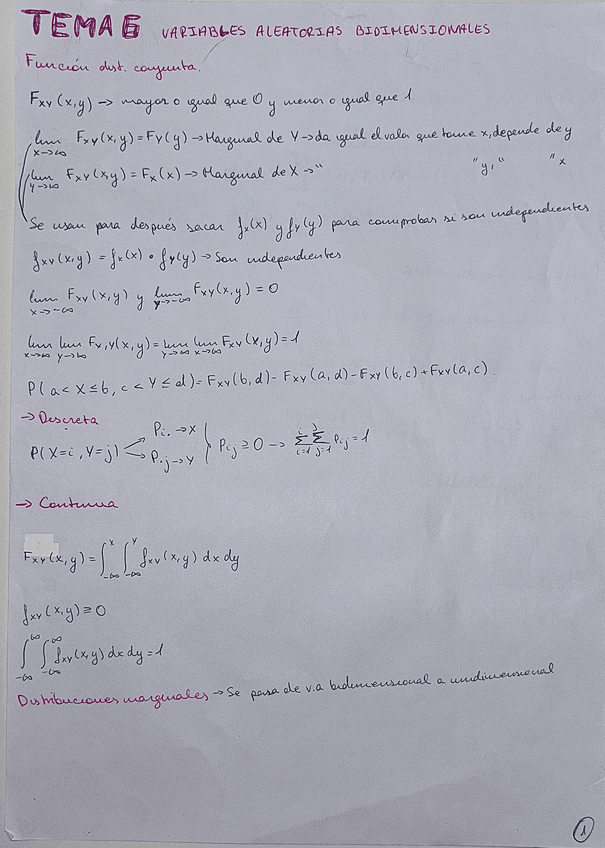 TEMA 6 VARIABLES ALEATORIAS BIDIMENSIONALES
Función dist. conjunta.
F_XY (x,y) → mayor o igual que 0 y menor o igual que 1
lim x→∞ F_XY (x,y) = F_Y (y) → Marginal de Y → da igual el valor que tome x, depende de y
lim y→∞ F_XY (x,y) = F_X (x) → Marginal de X → " " y, " " x
Se usan para después sacar f_X(x) y f_Y(y) para comprobar si son independientes
f_XY (x,y) = f_X(x) · f_Y(y) → Son independientes
lim x→-∞ F_XY (x,y) y lim y→-∞ F_XY (x,y) = 0
lim x→∞ lim y→∞ F_X,Y(x,y) = lim y→∞ lim x→∞ F_XY (x,y) = 1
P(a < X ≤ b, c < Y ≤ d) = F_XY (b,d) - F_XY (a,d) - F_XY (b,c) + F_XY (a,c)
→ Discreta
P(X=i, Y=j) P_i. → X P_.j → Y } P_ij ≥ 0 → Σ_{i=1}^{i} Σ_{j=1}^{j} P_ij = 1
→ Continua
F_XY (x,y) = ∫_{-∞}^{x} ∫_{-∞}^{y} f_XY (x,y) dx dy
f_XY (x,y) ≥ 0
∫_{-∞}^{∞} ∫_{-∞}^{∞} f_XY (x,y) dx dy = 1
Distribuciones marginales → Se pasa de v.a bidimensional a unidimensional
1